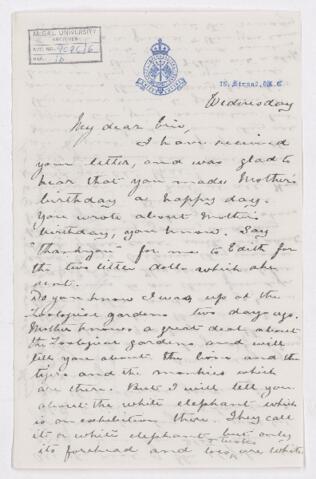 McGILL UNIVERSITY
ARCHIVES
ACC. NO.
REF.
Wednesday
My dear Eric,
I have received
your letter, and was glad to
hear that you made Mother's
birthday a happy day.
You wrote about Mother's
birthday, you know. Say
"thankyou" for me to Edith for
the two little dolls which she
sent.
Do you know I was up at the
Zoological gardens two days ago.
Mother knows a great deal about
the Zoological gardens and will
tell you about the lions and the
tigers and the monkies which
are there. But I will tell you
about the white elephant which
is on exhibition there. They call
it a white elephant but only
its forehead and tusks are white